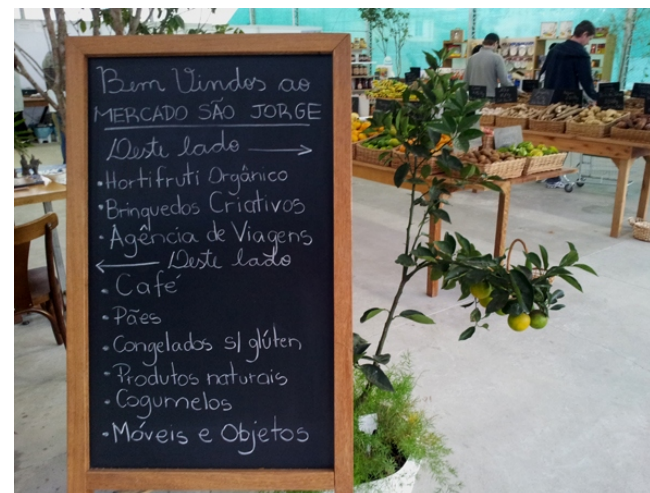 Bem Vindos ao
MERCADO SÃO JORGE
Deste lado →
• Hortifruti Orgânico
• Brinquedos Criativos
• Agência de Viagens
← Deste lado
• Café
• Pães
• Congelados s/ glúten
• Produtos naturais
• Cogumelos
• Móveis e Objetos